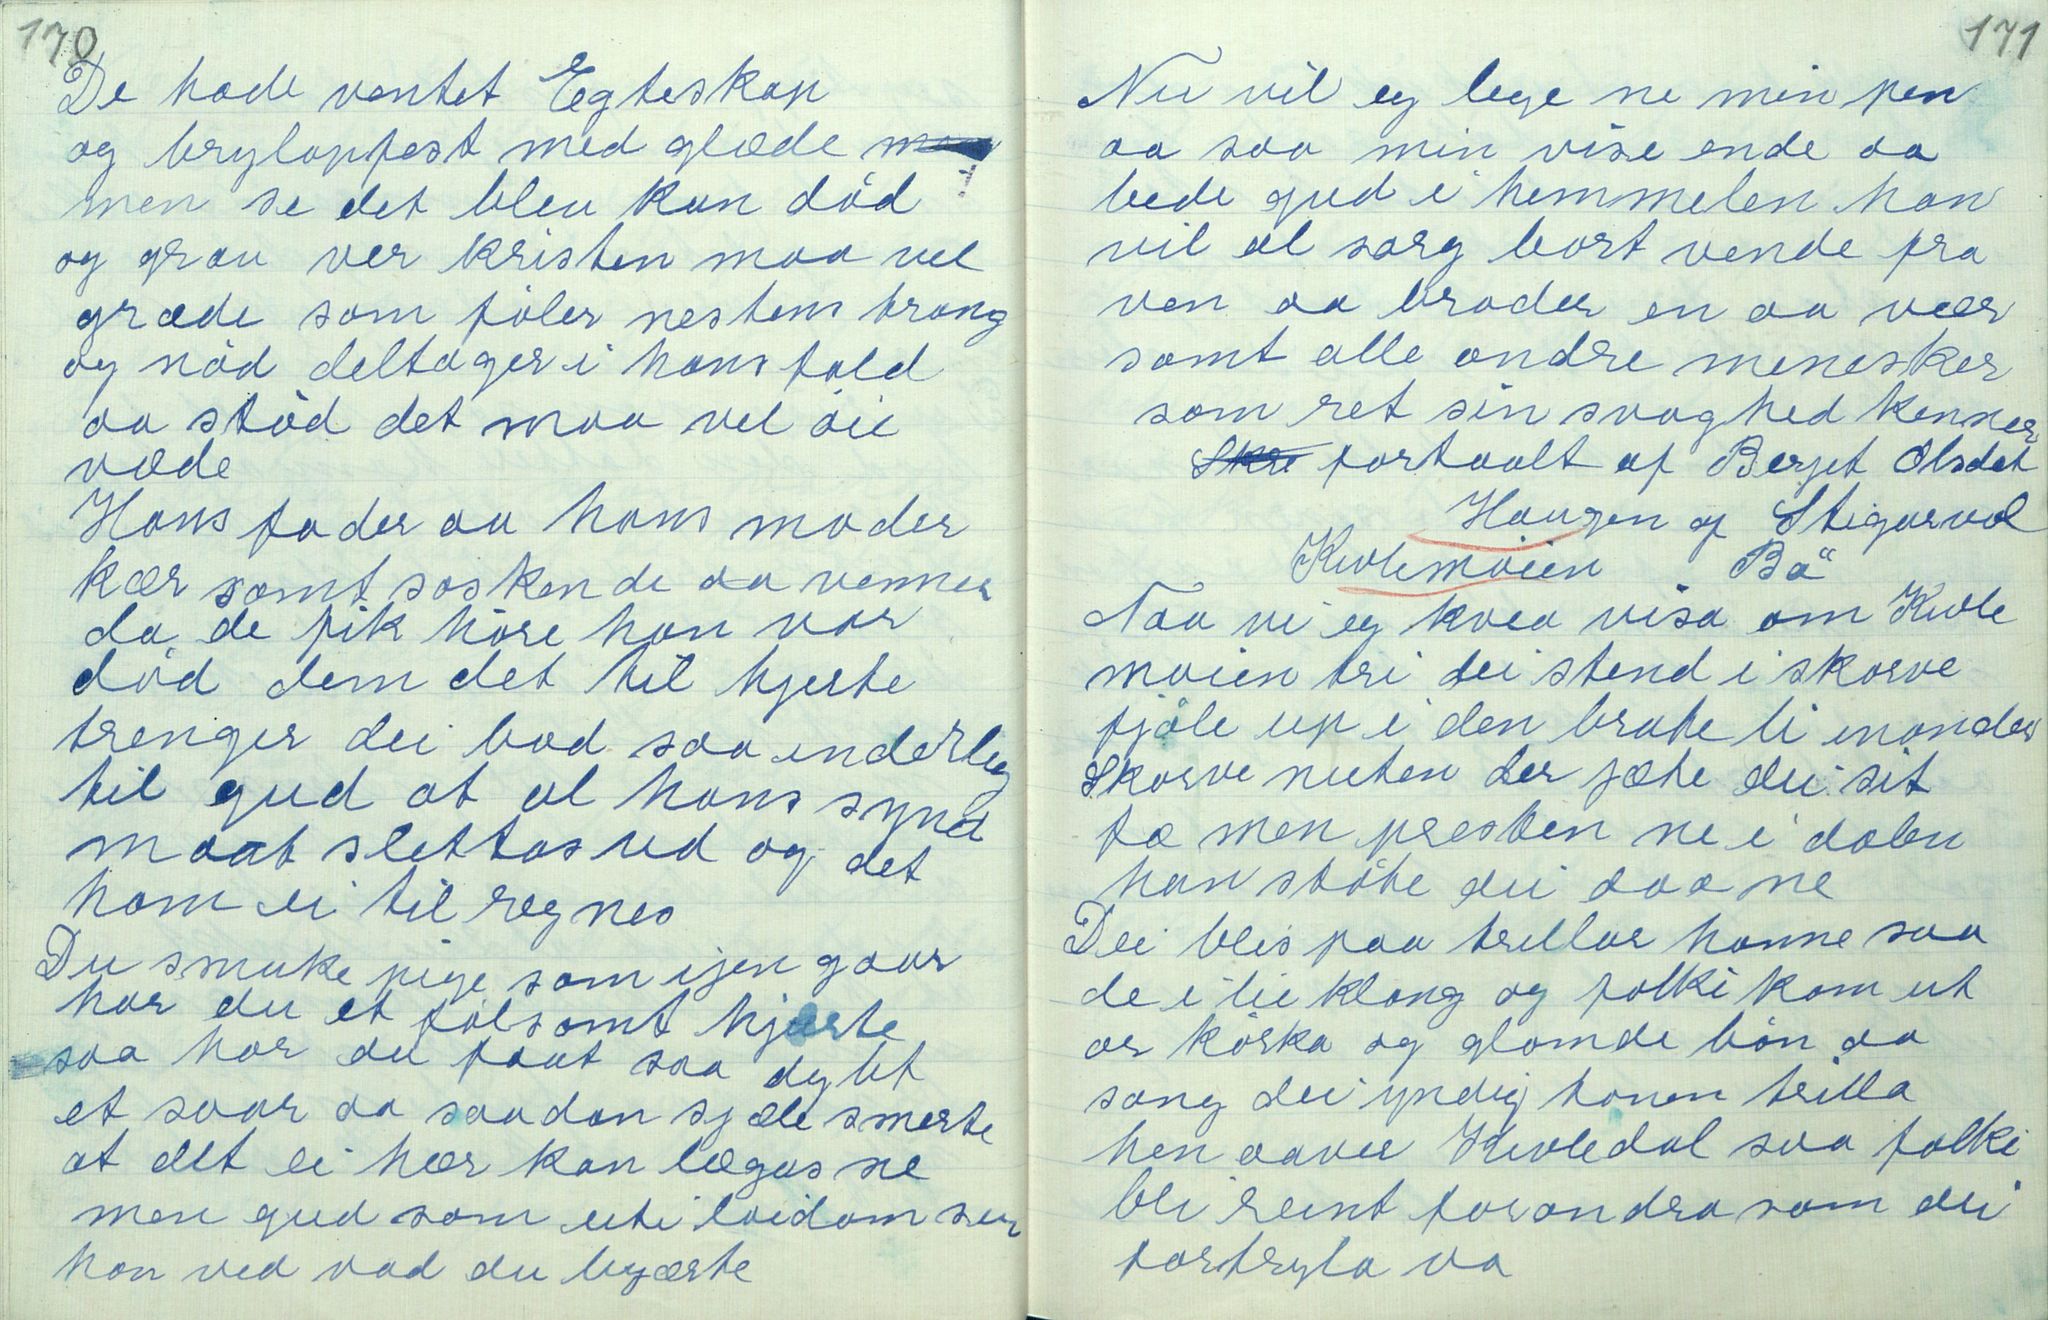 170
De hade ventet Egteskap
og bryloppest med glæde
men se det blev kun død
og grav ver kristen maa vel
græde som føler nestens trang
og nød deltager i hans fald
aa stød det maa vel øie
væde
Hans fader aa hans moder
kær samt søskende aa venner
da de fik høre han var
død dem det til hjerte
trenger dei bad saa inderlig
til gud at al hans synd
maat slettas ud og det
ham ei til regnes
Du smuke pige som igen gaar
har du et følsomt hjerte
saa har du faat saa dybt
et saar aa saadan sjæle smerte
at det ei hær kan lægas ne
men gud som uti løidom ser
han ved vad du bygærte
171
Nu vil eg lege ne min pen
aa saa min vise ende aa
bede gud i hemmelen han
vil al sorg bort vende fra
ven aa broder en aa vær
samt alle andre menesker
som ret sin svaghed kenner
Skre fortaalt af Berjet Olsdat
Haugen af Stigarvol
Kivlemøien Bø
Naa vi eg kvea visa om Kivle
møien tri dei stend i skorve
fjøle up i den brate li inonder
Skorve nuten der jæte dei sit
fæ men presten ne i dalen
han støte dei daa ne
Dei bles paa trillar hanne saa
de i lie klang og folki kom ut
or kørka og glømde bøn aa
sang dei yndig tonen trilla
hen aaver Kivledal saa folki
bli reint forandra som dei
fortryla va